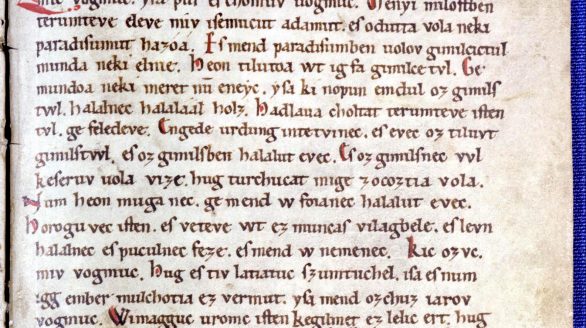 mic vogmuc. ysa pur es chomuv uogmuc. Menyi milostben
terumteve eleve miv isemucut adamut. es odutta vola neki
paradisumut hazoa. Es mend paradisumben uolov gimilcictul
munda neki elnie. Heon tilutoa wt ig fa gimilce tvl. Ge
mundoa neki meret nu eneyc. ysa ki nopun emdul oz gimils
twl. halalnec halalaal holz. Hadlaua choltat terumteve isten
tvl. ge feledeve. Engede urdung intetvinec. es evec oz tiluvt
gimilstwl. es oz gimilsben halalut evec. Es oz gimilsnec vvl
keseruv uola vize. hug turchucat mige zocoztia vola.
Num heon muga nec. ge mend w foianec halalut evec.
Horogu vec isten. es veteve wt ez muncas vilagbele. es levn
halalnec es puculnec feze. es mend w nemenec. Kic ozvc.
miv vogmuc. Hug es tiv latiatuv szumtuchel. isa es num
igg ember mulchotia ez vermut. ysa mend ozchuz iarov
vogmuc. Wimagguc uromc isten kegilmet ez lelic ert. hug